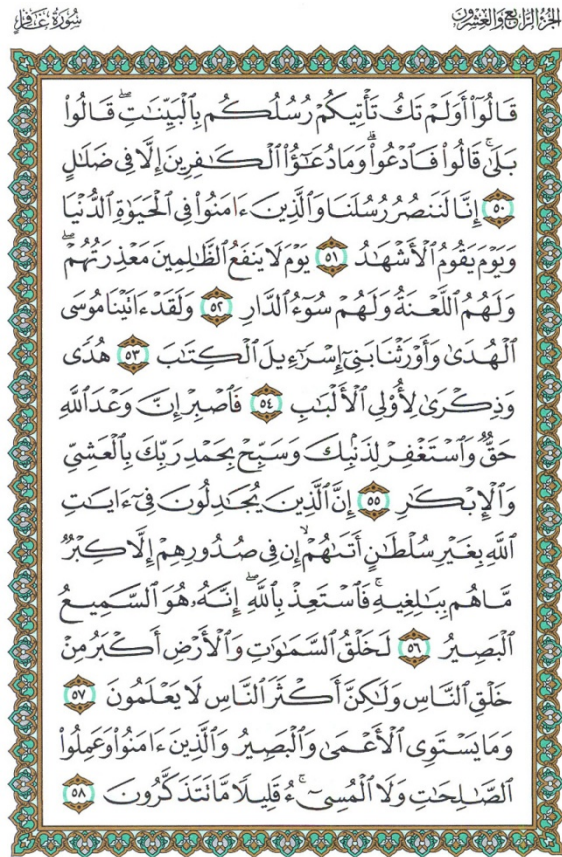 الجزء الرابع والعشرون
سورة غافر
قَالُوٓا۟ أَوَلَمْ تَكُ تَأْتِيكُمْ رُسُلُكُم بِٱلْبَيِّنَـٰتِ ۖ قَالُوا۟
بَلَىٰ ۚ قَالُوا۟ فَٱدْعُوا۟ ۗ وَمَا دُعَـٰٓؤُا۟ ٱلْكَـٰفِرِينَ إِلَّا فِى ضَلَـٰلٍ
٥٠ إِنَّا لَنَنصُرُ رُسُلَنَا وَٱلَّذِينَ ءَامَنُوا۟ فِى ٱلْحَيَوٰةِ ٱلدُّنْيَا
وَيَوْمَ يَقُومُ ٱلْأَشْهَـٰدُ ٥١ يَوْمَ لَا يَنفَعُ ٱلظَّـٰلِمِينَ مَعْذِرَتُهُمْ ۖ
وَلَهُمُ ٱللَّعْنَةُ وَلَهُمْ سُوٓءُ ٱلدَّارِ ٥٢ وَلَقَدْ ءَاتَيْنَا مُوسَى
ٱلْهُدَىٰ وَأَوْرَثْنَا بَنِىٓ إِسْرَٰٓءِيلَ ٱلْكِتَـٰبَ ٥٣ هُدًى
وَذِكْرَىٰ لِأُو۟لِى ٱلْأَلْبَـٰبِ ٥٤ فَٱصْبِرْ إِنَّ وَعْدَ ٱللَّهِ
حَقٌّ وَٱسْتَغْفِرْ لِذَنۢبِكَ وَسَبِّحْ بِحَمْدِ رَبِّكَ بِٱلْعَشِىِّ
وَٱلْإِبْكَـٰرِ ٥٥ إِنَّ ٱلَّذِينَ يُجَـٰدِلُونَ فِىٓ ءَايَـٰتِ
ٱللَّهِ بِغَيْرِ سُلْطَـٰنٍ أَتَىٰهُمْ ۙ إِن فِى صُدُورِهِمْ إِلَّا كِبْرٌ
مَّا هُم بِبَـٰلِغِيهِ ۚ فَٱسْتَعِذْ بِٱللَّهِ ۖ إِنَّهُۥ هُوَ ٱلسَّمِيعُ
ٱلْبَصِيرُ ٥٦ لَخَلْقُ ٱلسَّمَـٰوَٰتِ وَٱلْأَرْضِ أَكْبَرُ مِنْ
خَلْقِ ٱلنَّاسِ وَلَـٰكِنَّ أَكْثَرَ ٱلنَّاسِ لَا يَعْلَمُونَ ٥٧
وَمَا يَسْتَوِى ٱلْأَعْمَىٰ وَٱلْبَصِيرُ وَٱلَّذِينَ ءَامَنُوا۟ وَعَمِلُوا۟
ٱلصَّـٰلِحَـٰتِ وَلَا ٱلْمُسِىٓءُ ۚ قَلِيلًا مَّا تَتَذَكَّرُونَ ٥٨